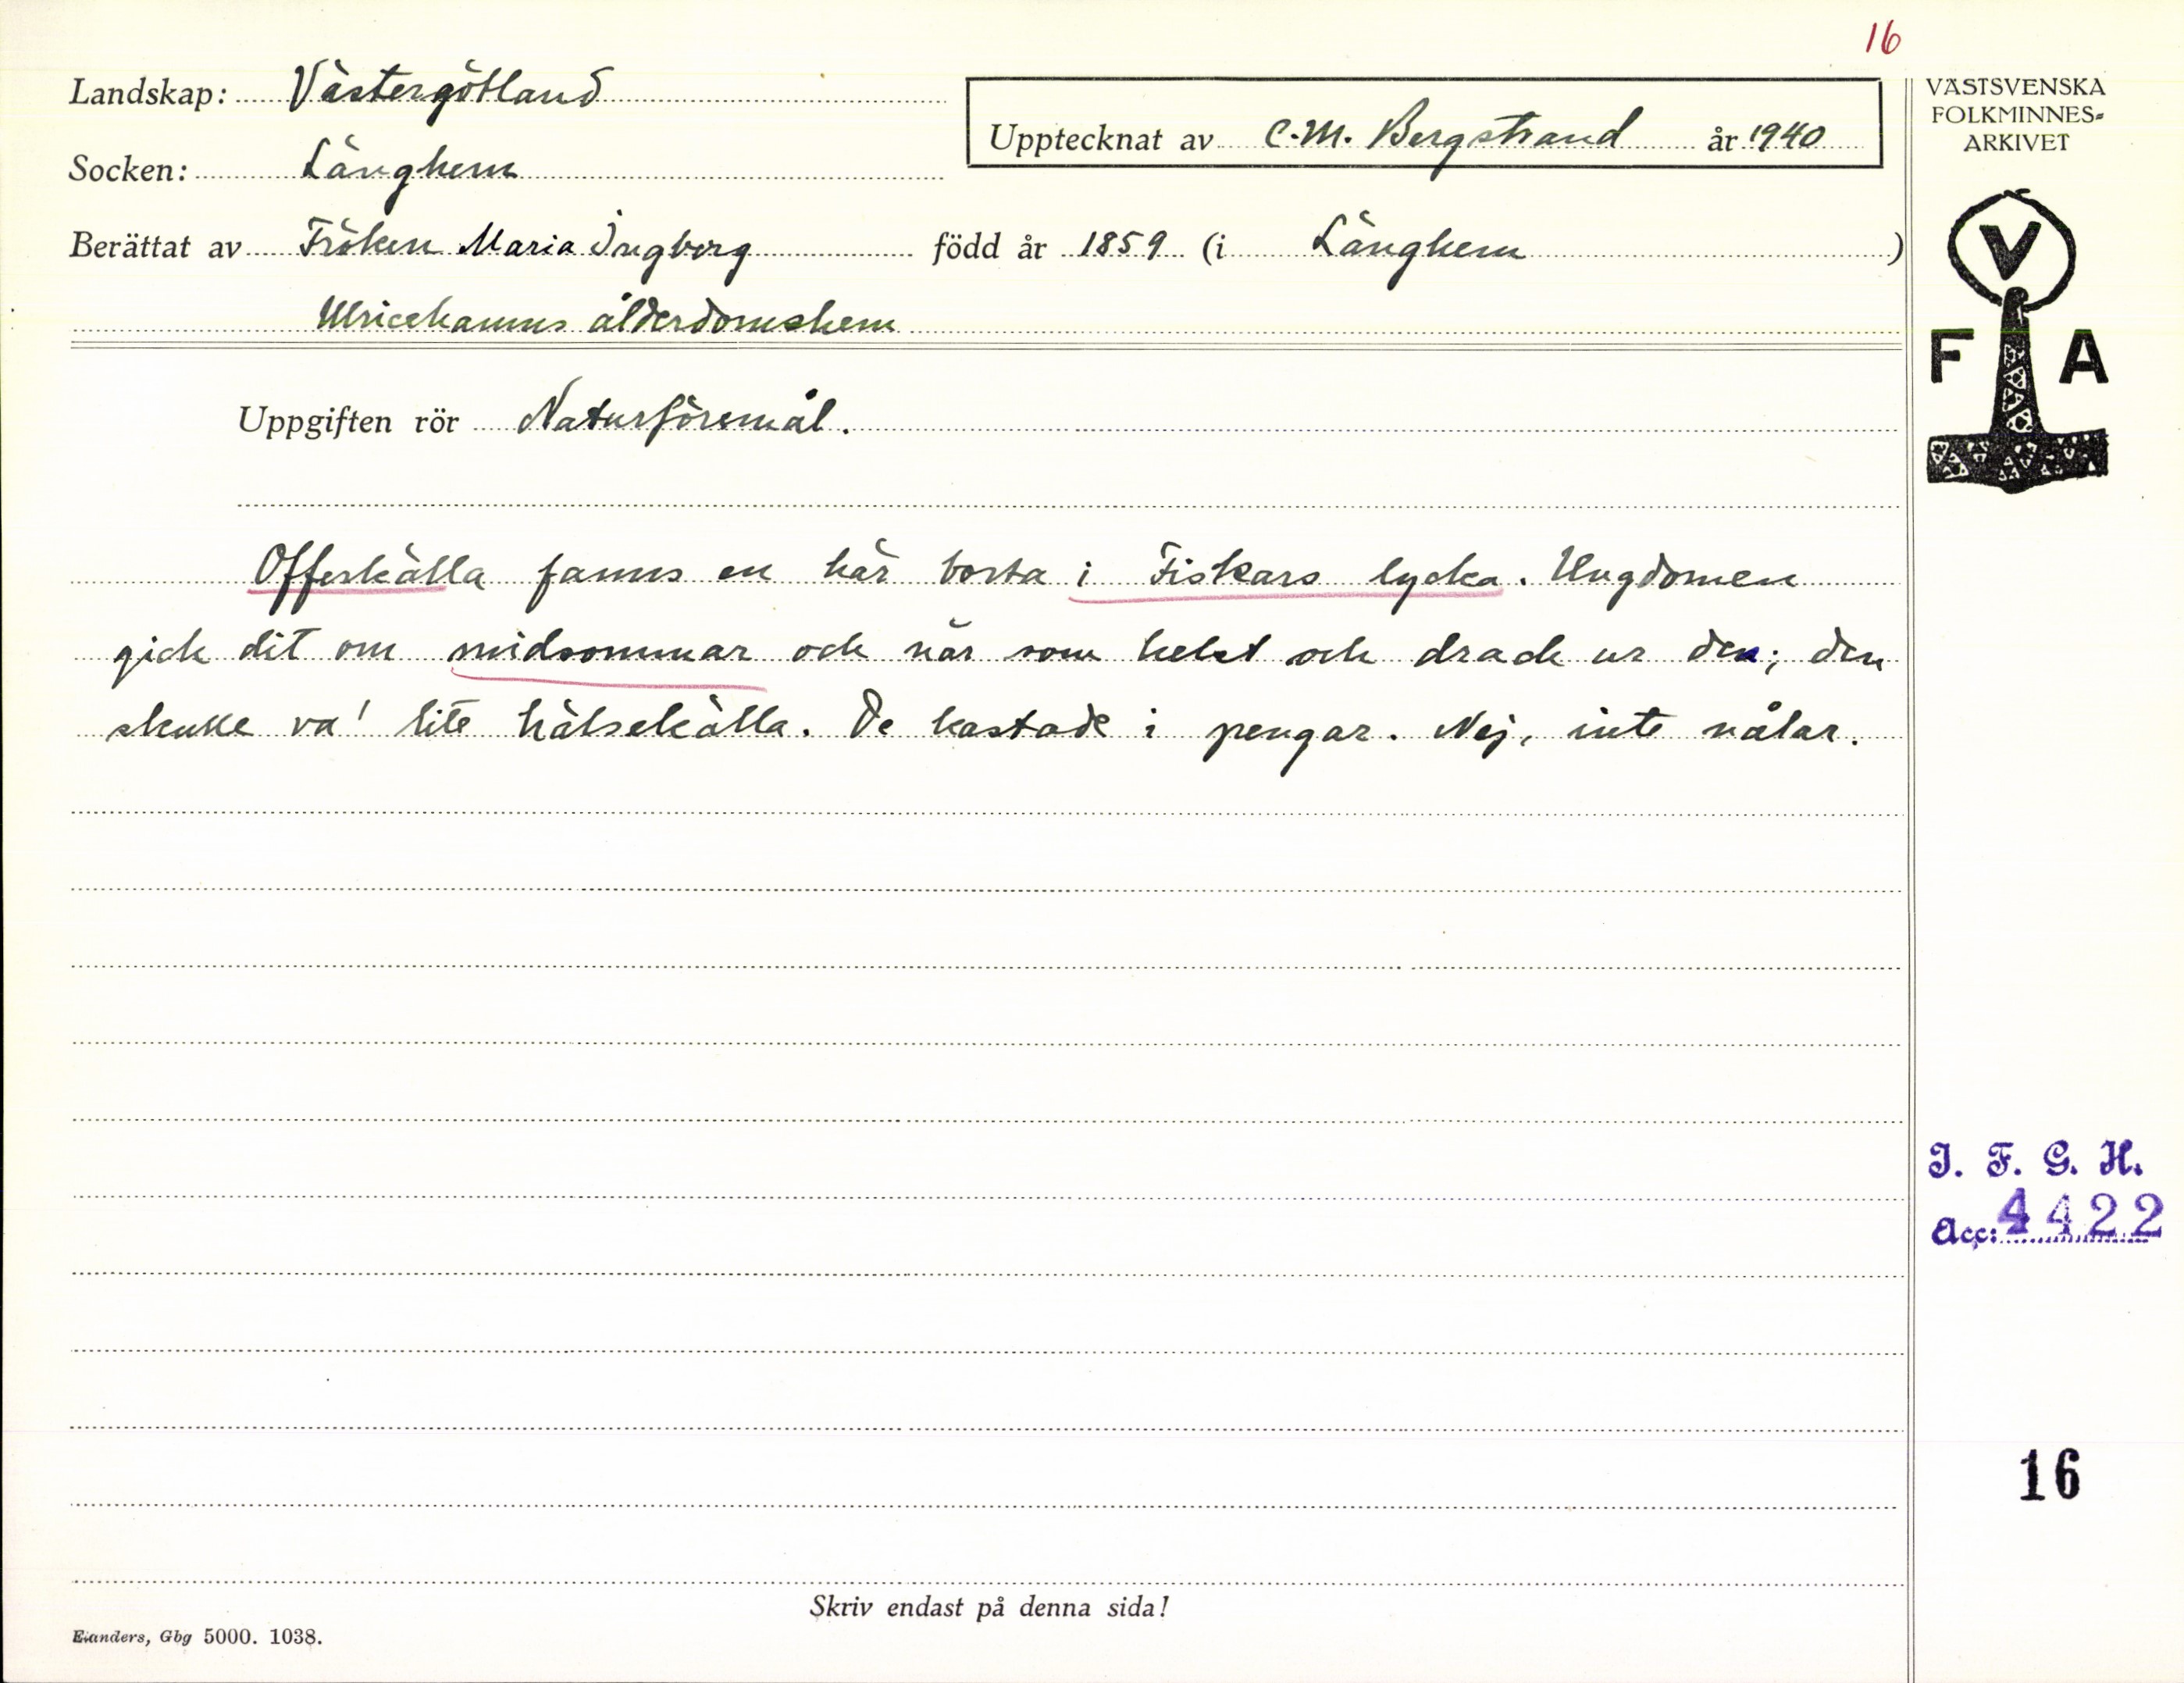 16
Landskap: Västergötland
Socken: Länghem
Upptecknat av C.M. Bergstrand år 1940
Berättat av Fröken Maria Ingborg född år 1859 (i Länghem)
Ulricehamns ålderdomshem
Uppgiften rör Naturföremål.
Offerkälla fanns en här borta i Fiskars lycka. Ungdomen
gick dit om midsommar och när som helst och drack ur den; den
skulle va' lite hälsekälla. De kastade i pengar. Nej, inte nålar.
Skriv endast på denna sida!
Elanders, Gbg 5000. 1038.
VÄSTSVENSKA
FOLKMINNES-
ARKIVET
V
F A
I. F. G. H.
Acc: 4422
16